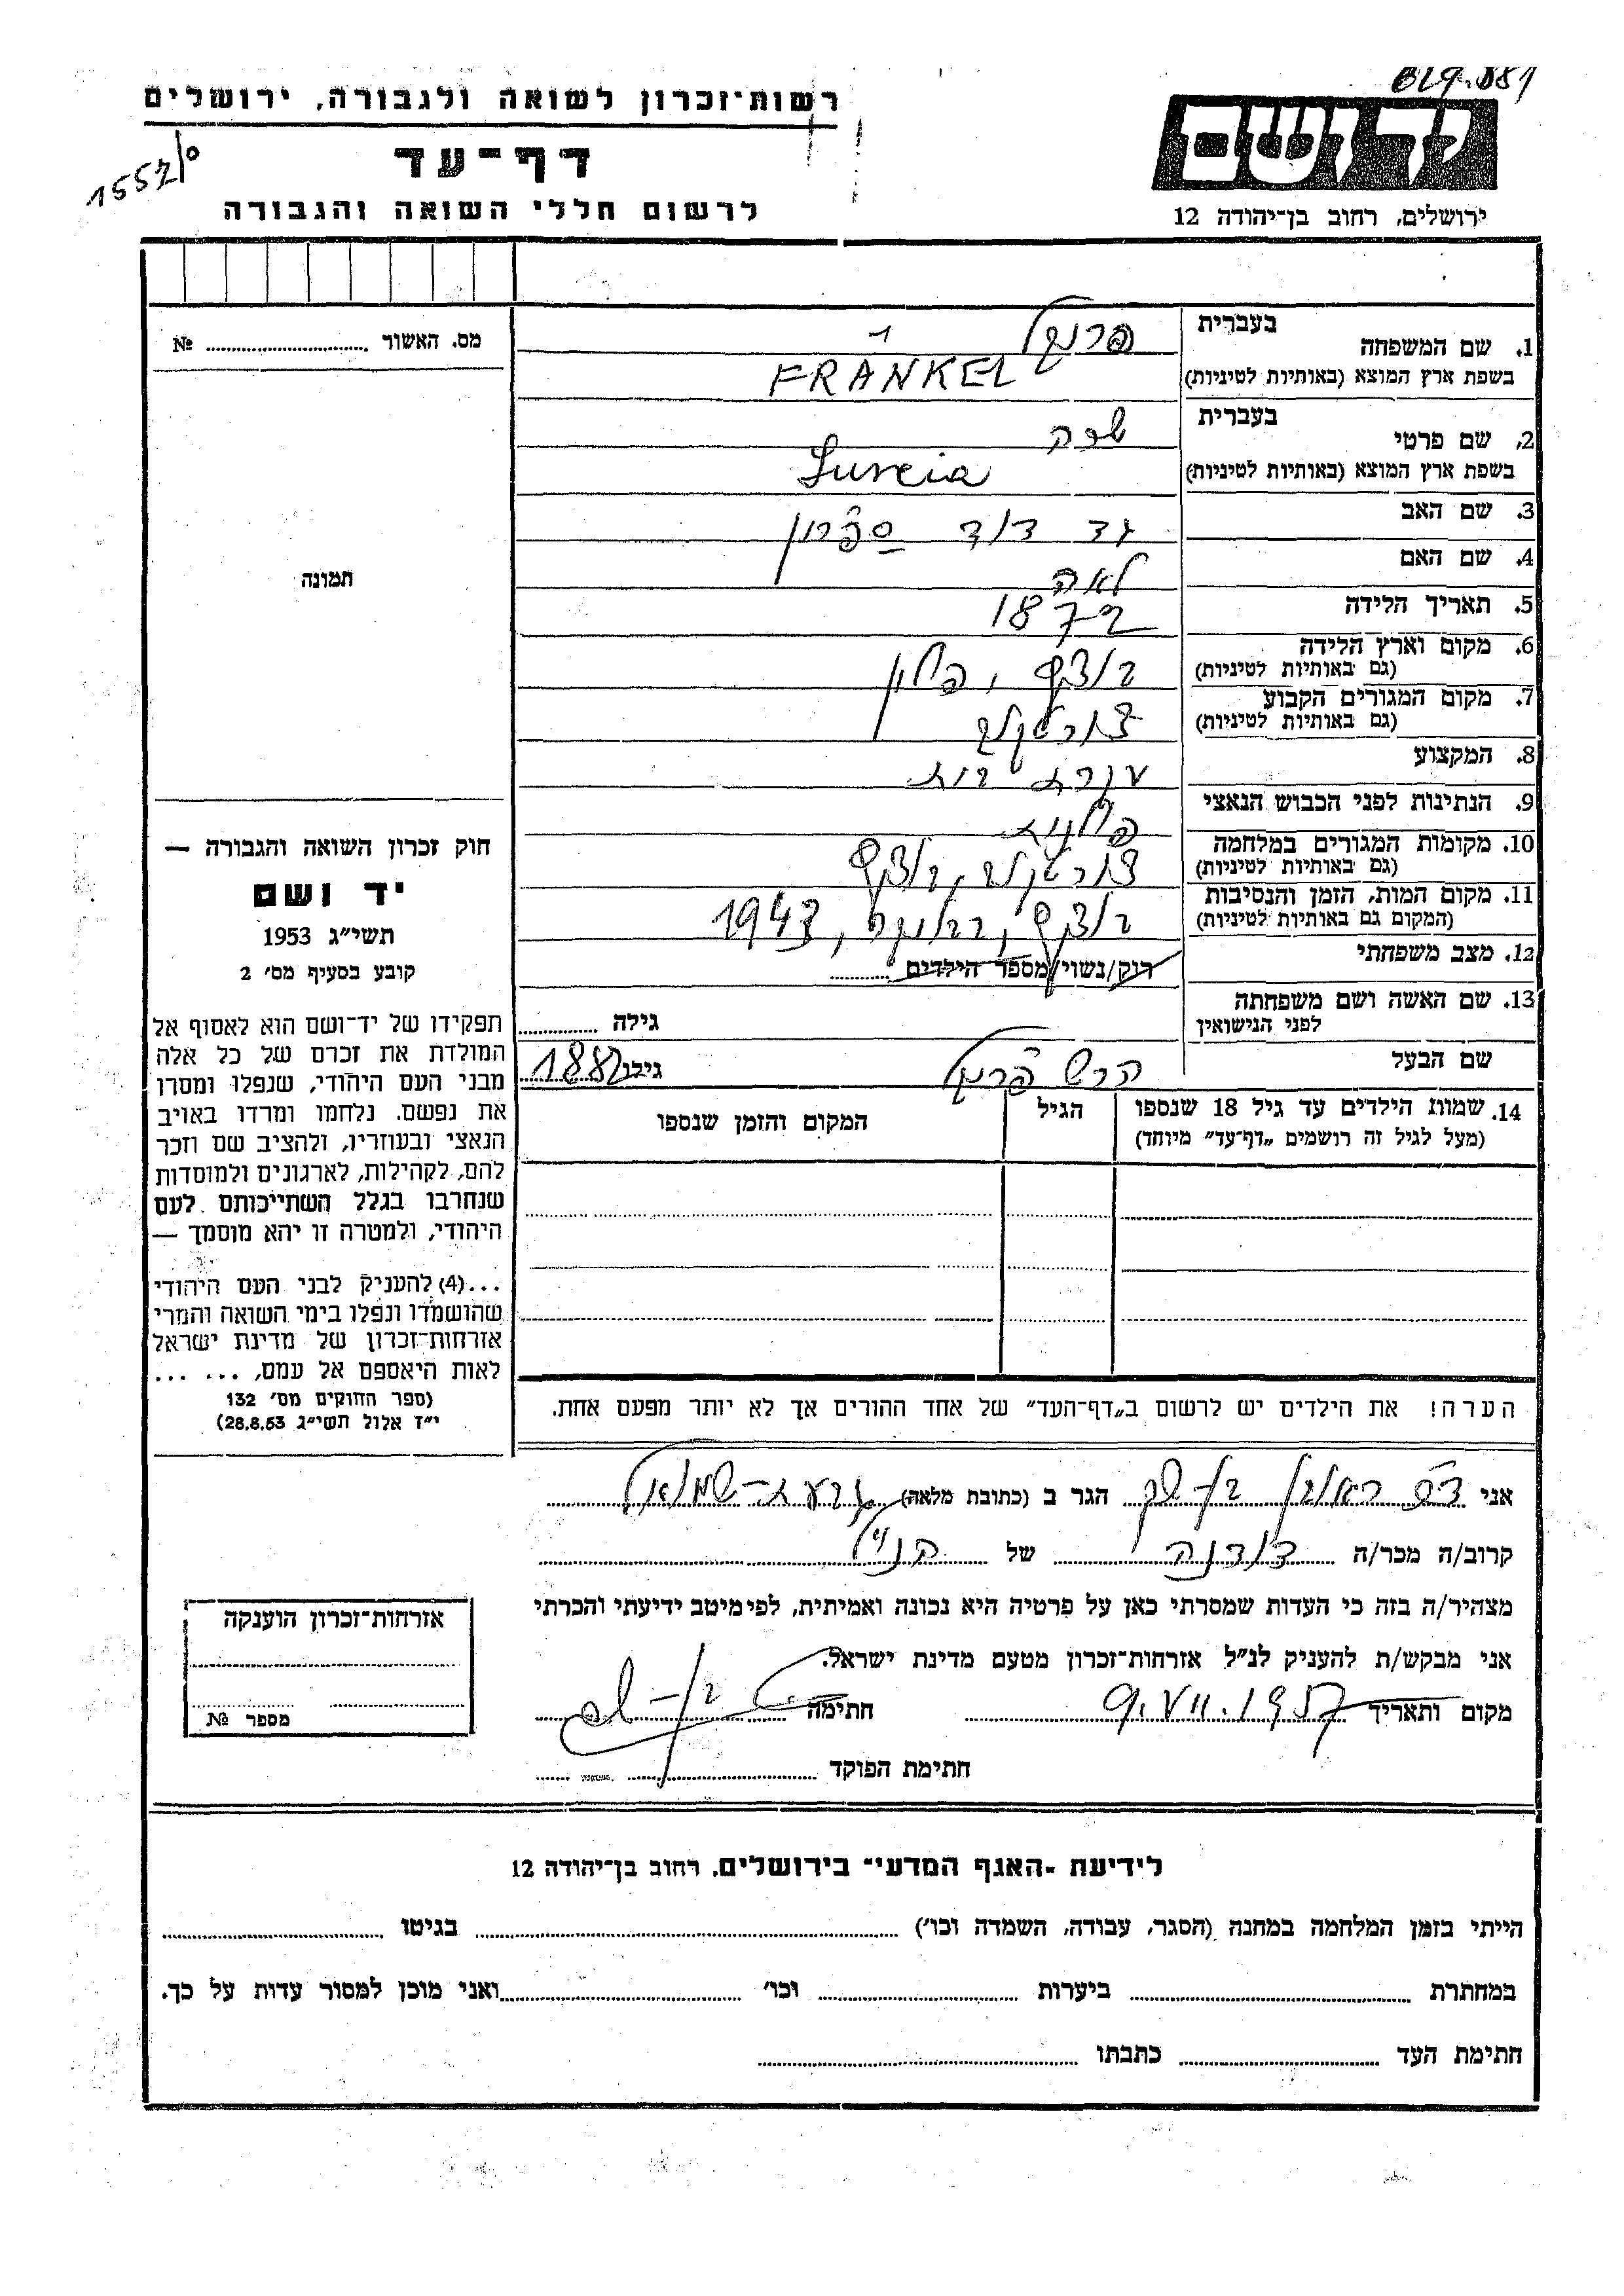 רשות־זכרון לשואה ולגבורה, ירושלים
דף־עד
לרשום חללי השואה והגבורה
יד ושם
ירושלים, רחוב בן־יהודה 12
1. שם המשפחה
בעברית
פרנקל
בשפת ארץ המוצא (באותיות לטיניות)
FRÄNKEL
2. שם פרטי
בעברית
שרה
בשפת ארץ המוצא (באותיות לטיניות)
3. שם האב
גד דוד
4. שם האם
לאה
5. תאריך הלידה
1872
6. מקום וארץ הלידה
(גם באותיות לטיניות)
פולין
7. מקום המגורים הקבוע
(גם באותיות לטיניות)
צ'ורטקוב
8. המקצוע
עקרת בית
9. הנתינות לפני הכבוש הנאצי
פולנית
10. מקומות המגורים במלחמה
(גם באותיות לטיניות)
צ'ורטקוב
11. מקום המות, הזמן והנסיבות
(המקום גם באותיות לטיניות)
1943
12. מצב משפחתי
רוק/נשוי/מספר הילדים
13. שם האשה ושם משפחתה
לפני הנישואין
גילה
שם הבעל
הרש פרנקל
גילו 1882
14. שמות הילדים עד גיל 18 שנספו
(מעל לגיל זה רושמים „דף־עד” מיוחד)
הגיל
המקום והזמן שנספו
הערה! את הילדים יש לרשום ב„דף־העד” של אחד ההורים אך לא יותר מפעם אחת.
מס. האשור № 
תמונה
חוק זכרון השואה והגבורה —
יד ושם
תשי״ג 1953
קובע בסעיף מס׳ 2
תפקידו של יד־ושם הוא לאסוף אל
המולדת את זכרם של כל אלה
מבני העם היהודי, שנפלו ומסרו
את נפשם. נלחמו ומרדו באויב
הנאצי ובעוזריו, ולהציב שם וזכר
להם, לקהילות, לארגונים ולמוסדות
שנחרבו בגלל השתייכותם לעם
היהודי, ולמטרה זו יהא מוסמך —
...(4) להעניק לבני העם היהודי
שהושמדו ונפלו בימי השואה והמרי
אזרחות־זכרון של מדינת ישראל
לאות היאספם אל עמם, ... ...
(ספר החוקים מס׳ 132
י״ז אלול תשי״ג 28.8.53)
אני ראובן הגר ב (כתובת מלאה) גבעת־שמואל
קרוב/ה מכר/ה דודנה של הנ״ל
מצהיר/ה בזה כי העדות שמסרתי כאן על פרטיה היא נכונה ואמיתית, לפי מיטב ידיעתי והכרתי
אני מבקש/ת להעניק לנ״ל אזרחות־זכרון מטעם מדינת ישראל.
מקום ותאריך 9.VII.1957 חתימה
חתימת הפוקד
אזרחות־זכרון הוענקה
מספר №
לידיעת „האגף המדעי” בירושלים, רחוב בן־יהודה 12
הייתי בזמן המלחמה במחנה (הסגר, עבודה, השמדה וכו׳) בגיטו
במחתרת ביערות וכו׳ ואני מוכן למסור עדות על כך.
חתימת העד כתבתו